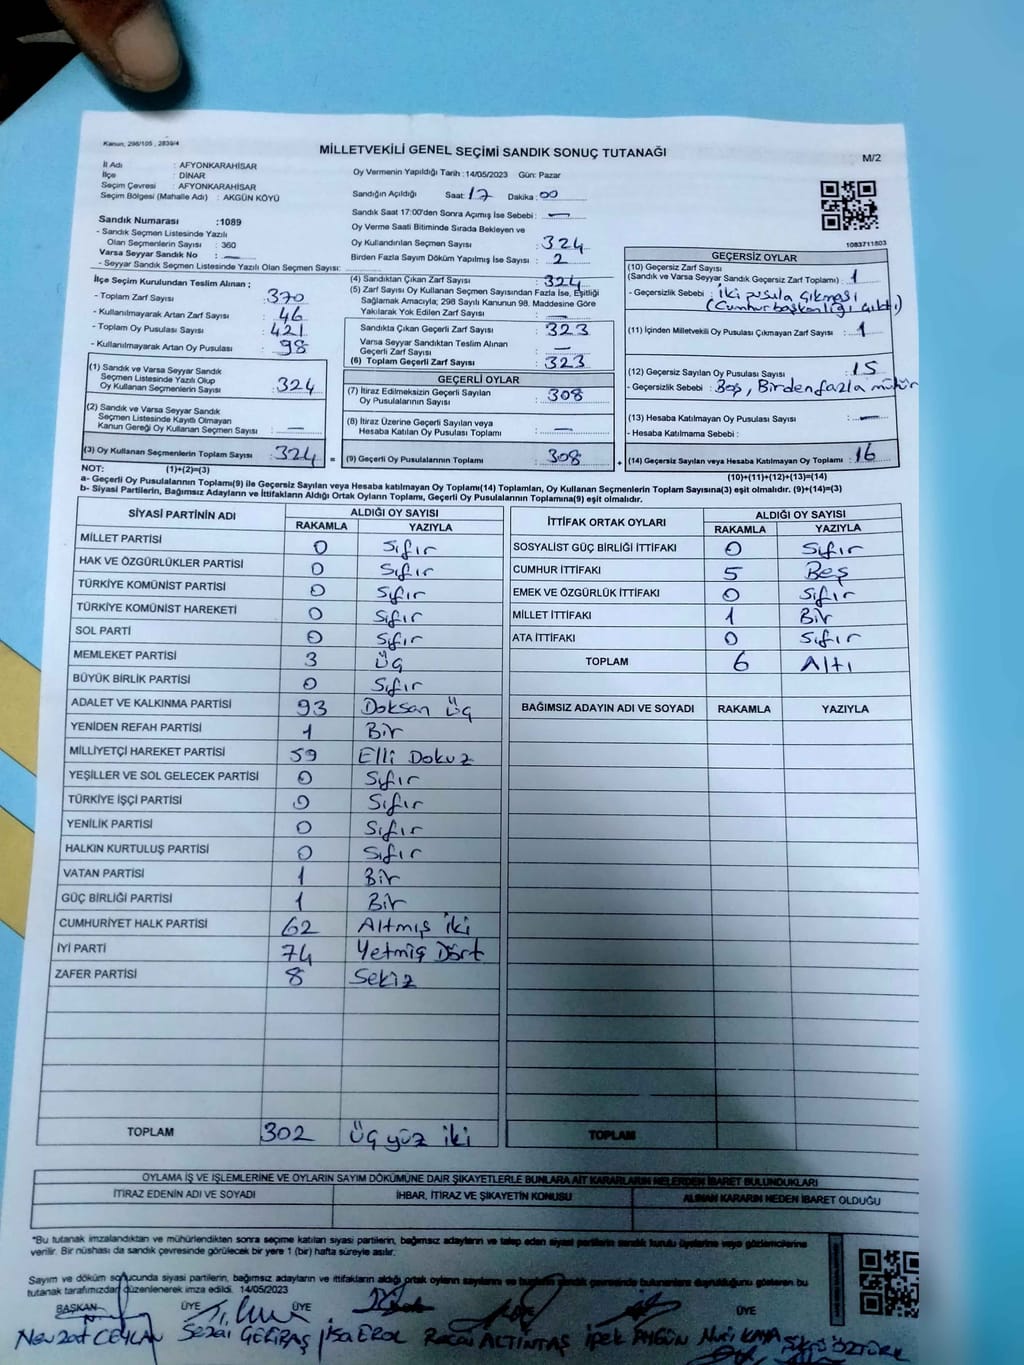 Kanun, 298/105 , 2839/4
MİLLETVEKİLİ GENEL SEÇİMİ SANDIK SONUÇ TUTANAĞI
M/2
İl Adı : AFYONKARAHİSAR
İlçe : DİNAR
Seçim Çevresi : AFYONKARAHİSAR
Seçim Bölgesi (Mahalle Adı) : AKGÜN KÖYÜ
Oy Vermenin Yapıldığı Tarih :14/05/2023 Gün: Pazar
Sandığın Açıldığı Saat: 17 Dakika: 00
Sandık Saat 17:00'den Sonra Açımış İse Sebebi : —
Oy Verme Saati Bitiminde Sırada Bekleyen ve
Oy Kullandırılan Seçmen Sayısı : 324
Birden Fazla Sayım Döküm Yapılmış İse Sayısı : 2
1083711803
Sandık Numarası :1089
- Sandık Seçmen Listesinde Yazılı
Olan Seçmenlerin Sayısı : 360
Varsa Seyyar Sandık No : —
- Seyyar Sandık Seçmen Listesinde Yazılı Olan Seçmen Sayısı:
İlçe Seçim Kurulundan Teslim Alınan ;
- Toplam Zarf Sayısı : 370
- Kullanılmayarak Artan Zarf Sayısı : 46
- Toplam Oy Pusulası Sayısı : 421
- Kullanılmayarak Artan Oy Pusulası : 98
(1) Sandık ve Varsa Seyyar Sandık
Seçmen Listesinde Yazılı Olup
Oy Kullanan Seçmenlerin Sayısı : 324
(2) Sandık ve Varsa Seyyar Sandık
Seçmen Listesinde Kayıtlı Olmayan
Kanun Gereği Oy Kullanan Seçmen Sayısı : —
(3) Oy Kullanan Seçmenlerin Toplam Sayısı : 324 =
(4) Sandıktan Çıkan Zarf Sayısı : 324
(5) Zarf Sayısı Oy Kullanan Seçmen Sayısından Fazla İse, Eşitliği
Sağlamak Amacıyla; 298 Sayılı Kanunun 98. Maddesine Göre
Yakılarak Yok Edilen Zarf Sayısı : —
Sandıkta Çıkan Geçerli Zarf Sayısı : 323
Varsa Seyyar Sandıktan Teslim Alınan
Geçerli Zarf Sayısı : —
(6) Toplam Geçerli Zarf Sayısı : 323
GEÇERLİ OYLAR
(7) İtiraz Edilmeksizin Geçerli Sayılan
Oy Pusulalarının Sayısı : 308
(8) İtiraz Üzerine Geçerli Sayılan veya
Hesaba Katılan Oy Pusulası Toplamı : —
(9) Geçerli Oy Pusulalarının Toplamı : 308 +
GEÇERSİZ OYLAR
(10) Geçersiz Zarf Sayısı
(Sandık ve Varsa Seyyar Sandık Geçersiz Zarf Toplamı) : 1
- Geçersizlik Sebebi : İki pusula çıkması
(Cumhurbaşkanlığı çıktı)
(11) İçinden Milletvekili Oy Pusulası Çıkmayan Zarf Sayısı : 1
(12) Geçersiz Sayılan Oy Pusulası Sayısı : 15
- Geçersizlik Sebebi : Boş, Birden fazla mühür
(13) Hesaba Katılmayan Oy Pusulası Sayısı : —
- Hesaba Katılmama Sebebi :
(14) Geçersiz Sayılan veya Hesaba Katılmayan Oy Toplamı : 16
NOT: (1)+(2)=(3)
(10)+(11)+(12)+(13)=(14)
a- Geçerli Oy Pusulalarının Toplamı(9) ile Geçersiz Sayılan veya Hesaba Katılmayan Oy Toplamı(14) Toplamları, Oy Kullanan Seçmenlerin Toplam Sayısına(3) eşit olmalıdır. (9)+(14)=(3)
b- Siyasi Partilerin, Bağımsız Adayların ve İttifakların Aldığı Ortak Oyların Toplamı, Geçerli Oy Pusulalarının Toplamına(9) eşit olmalıdır.
SİYASİ PARTİNİN ADI ALDIĞI OY SAYISI
RAKAMLA YAZIYLA
MİLLET PARTİSİ 0 Sıfır
HAK VE ÖZGÜRLÜKLER PARTİSİ 0 Sıfır
TÜRKİYE KOMÜNİST PARTİSİ 0 Sıfır
TÜRKİYE KOMÜNİST HAREKETİ 0 Sıfır
SOL PARTİ 0 Sıfır
MEMLEKET PARTİSİ 3 Üç
BÜYÜK BİRLİK PARTİSİ 0 Sıfır
ADALET VE KALKINMA PARTİSİ 93 Doksan Üç
YENİDEN REFAH PARTİSİ 1 Bir
MİLLİYETÇİ HAREKET PARTİSİ 59 Elli Dokuz
YEŞİLLER VE SOL GELECEK PARTİSİ 0 Sıfır
TÜRKİYE İŞÇİ PARTİSİ 0 Sıfır
YENİLİK PARTİSİ 0 Sıfır
HALKIN KURTULUŞ PARTİSİ 0 Sıfır
VATAN PARTİSİ 1 Bir
GÜÇ BİRLİĞİ PARTİSİ 1 Bir
CUMHURİYET HALK PARTİSİ 62 Altmış iki
İYİ PARTİ 74 Yetmiş Dört
ZAFER PARTİSİ 8 Sekiz
TOPLAM 302 Üç yüz iki
İTTİFAK ORTAK OYLARI ALDIĞI OY SAYISI
RAKAMLA YAZIYLA
SOSYALİST GÜÇ BİRLİĞİ İTTİFAKI 0 Sıfır
CUMHUR İTTİFAKI 5 Beş
EMEK VE ÖZGÜRLÜK İTTİFAKI 0 Sıfır
MİLLET İTTİFAKI 1 Bir
ATA İTTİFAKI 0 Sıfır
TOPLAM 6 Altı
BAĞIMSIZ ADAYIN ADI VE SOYADI RAKAMLA YAZIYLA
TOPLAM
OYLAMA İŞ VE İŞLEMLERİNE VE OYLARIN SAYIM DÖKÜMÜNE DAİR ŞİKAYETLERLE BUNLARA AİT KARARLARIN NELERDEN İBARET BULUNDUKLARI
İTİRAZ EDENİN ADI VE SOYADI İHBAR, İTİRAZ VE ŞİKAYETİN KONUSU ALINAN KARARIN NEDEN İBARET OLDUĞU
"Bu tutanak imzalandıktan ve mühürlendikten sonra seçime katılan siyasi partilerin, bağımsız adayların ve talep eden siyasi partilerin sandık kurulu üyelerine veya gözlemcilerine
verilir. Bir nüshası da sandık çevresinde görülecek bir yere 1 (bir) hafta süreyle asılır.
Sayım ve döküm sonucunda siyasi partilerin, bağımsız adayların ve ittifakların aldığı ortak oyların sayılarını ve bunların sandık çevresinde bulunanlara duyrulduğunu gösteren bu
tutanak tarafımızdan düzenlenerek imza edildi. 14/05/2023
BAŞKAN ÜYE ÜYE ÜYE
Nevzat CEYLAN Sezai GERİBAŞ İsa EROL Recai ALTINTAŞ İpek AYGÜN Nuri KAYA ÖZTÜRK